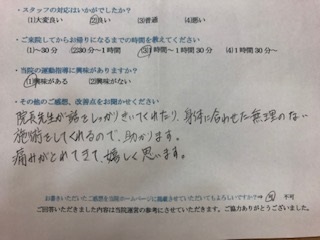 ・スタッフの対応はいかがでしたか？
(1)大変良い (2)良い (3)普通 (4)悪い
・ご来院してからお帰りになるまでの時間を教えてください
(1)～30分 (2)30分～1時間 (3)1時間～1時間30分 (4)1時間30分～
・当院の運動指導に興味がありますか？
(1)興味がある (2)興味がない
・その他のご感想、改善点をお聞かせください
院長先生が話をしっかりきいてくれたり、身体に合わせた無理のない
施術をしてくれるので、助かります。
痛みがとれてきて、嬉しく思います。
お書きいただいたご感想を当院ホームページに掲載させていただいてもよろしいですか？⇒ 可 不可
ご回答いただきました内容は当院運営の参考にさせていただきます。ご協力ありがとうございました。